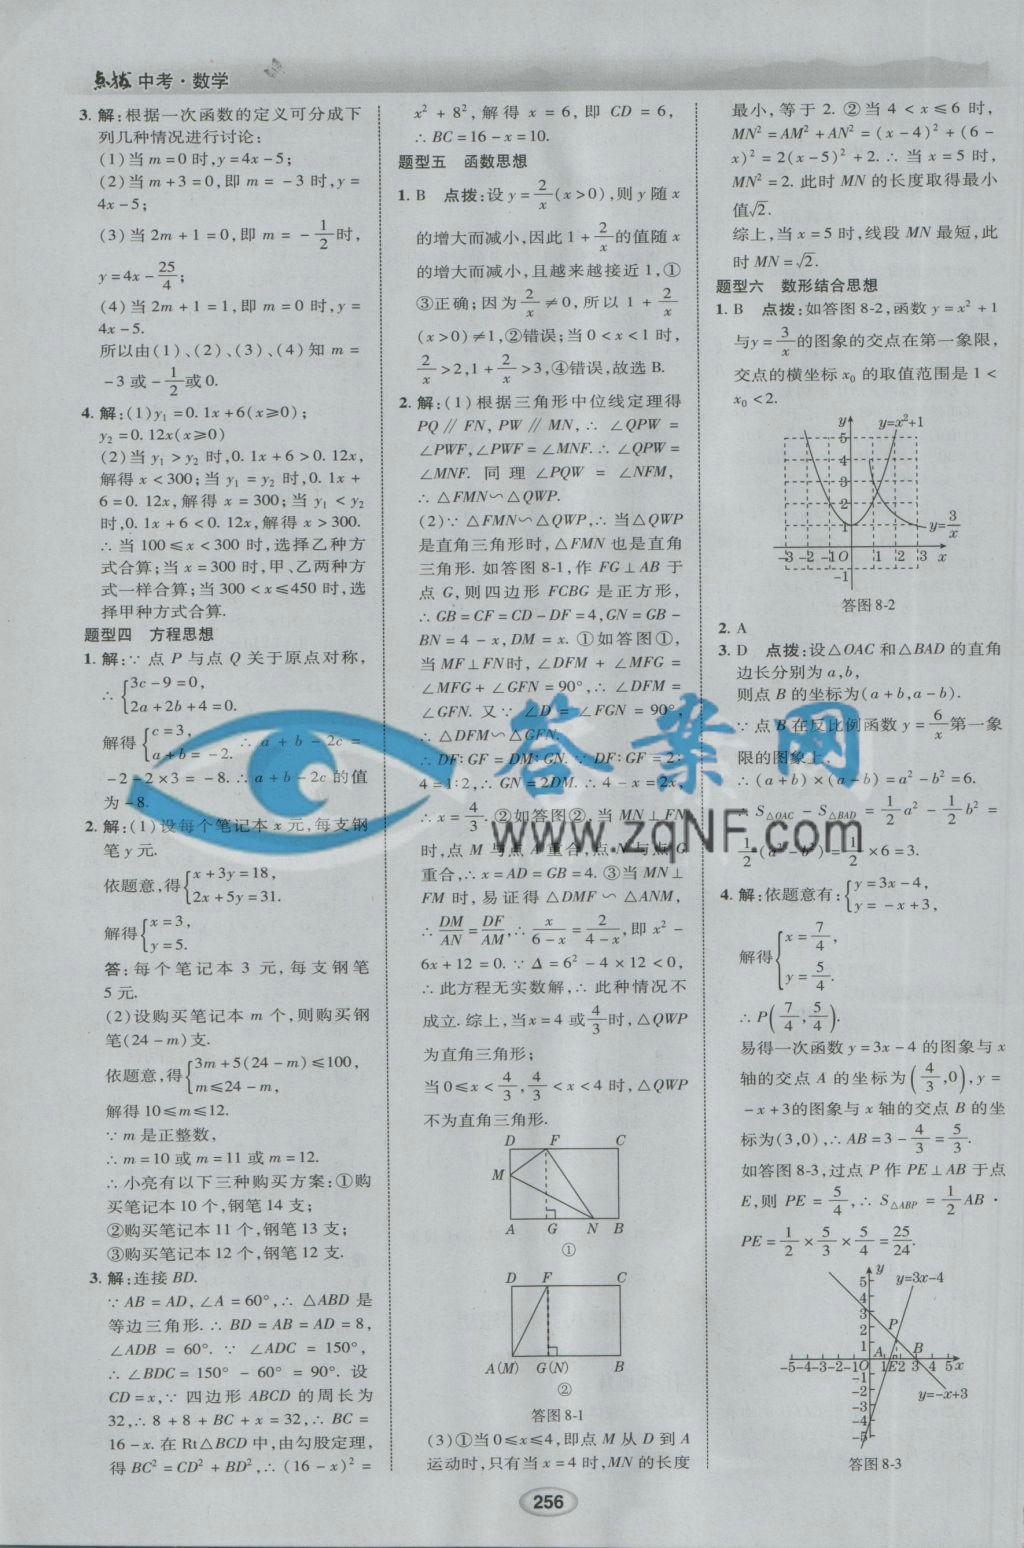 点拨 中考·数学
3. 解:根据一次函数的定义可分成下
列几种情况进行讨论:
(1)当 m=0 时,y=4x-5;
(2)当 m+3=0,即 m=-3 时,y=
4x-5;
(3)当 2m+1=0,即 m=-1/2时,
y=4x-25/4;
(4)当 2m+1=1,即 m=0 时,y=
4x-5.
所以由(1)、(2)、(3)、(4)知 m=
-3 或-1/2或0.
4. 解:(1)y₁=0.1x+6(x≥0);
y₂=0.12x(x≥0)
(2)当 y₁>y₂ 时,0.1x+6>0.12x,
解得 x<300;当 y₁=y₂ 时,0.1x+
6=0.12x,解得 x=300;当 y₁<y₂
时,0.1x+6<0.12x,解得 x>300.
∴当 100≤x<300 时,选择乙种方
式合算;当 x=300 时,甲、乙两种方
式一样合算;当 300<x≤450 时,选
择甲种方式合算.
题型四 方程思想
1. 解:∵点 P 与点 Q 关于原点对称,
∴{3c-9=0,
2a+2b+4=0.
解得{c=3,
a+b=-2.∴a+b-2c=
-2-2×3=-8.∴a+b-2c 的值
为-8.
2. 解:(1)设每个笔记本 x 元,每支钢
笔 y 元.
依题意,得{x+3y=18,
2x+5y=31.
解得{x=3,
y=5.
答:每个笔记本 3 元,每支钢笔
5 元.
(2)设购买笔记本 m 个,则购买钢
笔(24-m)支.
依题意,得{3m+5(24-m)≤100,
m≤24-m,
解得 10≤m≤12.
∵m 是正整数,
∴m=10 或 m=11 或 m=12.
∴小亮有以下三种购买方案:①购
买笔记本 10 个,钢笔 14 支;
②购买笔记本 11 个,钢笔 13 支;
③购买笔记本 12 个,钢笔 12 支.
3. 解:连接 BD.
∵AB=AD,∠A=60°,∴△ABD 是
等边三角形.∴BD=AB=AD=8,
∠ADB=60°.∵∠ADC=150°,
∴∠BDC=150°-60°=90°.设
CD=x,∵四边形 ABCD 的周长为
32,∴8+8+BC+x=32,∴BC=
16-x.在 Rt△BCD 中,由勾股定理,
得 BC²=CD²+BD²,∴(16-x)²=
x²+8²,解得 x=6,即 CD=6,
∴BC=16-x=10.
题型五 函数思想
1. B 点拨:设 y=2/x(x>0),则 y 随 x
的增大而减小,因此 1+2/x的值随 x
的增大而减小,且越来越接近 1,①
③正确;因为2/x≠0,所以 1+2/x
(x>0)≠1,②错误;当 0<x<1 时,
2/x>2,1+2/x>3,④错误,故选 B.
2. 解:(1)根据三角形中位线定理得
PQ∥FN,PW∥MN,∴∠QPW=
∠PWF,∠PWF=∠MNF.∴∠QPW=
∠MNF.同理 ∠PQW=∠NFM,
∴△FMN∽△QWP.
(2)∵△FMN∽△QWP,∴当△QWP
是直角三角形时,△FMN 也是直角
三角形.如答图 8-1,作 FG⊥AB 于
点 G,则四边形 FCBG 是正方形,
∴GB=CF=CD-DF=4,GN=GB-
BN=4-x,DM=x.①如答图①,
当 MF⊥FN时,∠DFM+∠MFG=
∠MFG+∠GFN=90°,∴∠DFM=
∠GFN.又∵∠D=∠FGN=90°,
∴△DFM∽△GFN.
∴DF:GF=DM:GN.∵DF:GF=2:
4=1:2,∴GN=2DM.∴4-x=2x,
∴x=4/3.②如答图②,当 MN⊥FN
时,点 M 与点 A 重合,点 N 与点 G
重合,∴x=AD=GB=4.③当 MN⊥
FM 时,易证得 △DMF∽△ANM,
∴DM/AN=DF/AM,∴x/(6-x)=2/(4-x),即 x²-
6x+12=0.∵Δ=6²-4×12<0,
∴此方程无实数解,∴此种情况不
成立.综上,当x=4 或4/3时,△QWP
为直角三角形;
当 0≤x<4/3,4/3<x<4 时,△QWP
不为直角三角形.
D F C
M
A G N B
①
D F C
A(M) G(N) B
②
答图 8-1
(3)①当 0≤x≤4,即点 M 从 D 到 A
运动时,只有当 x=4 时,MN 的长度
最小,等于 2.②当 4<x≤6 时,
MN²=AM²+AN²=(x-4)²+(6-
x)²=2(x-5)²+2.∴当 x=5 时,
MN²=2.此时 MN 的长度取得最小
值√2.
综上,当 x=5 时,线段 MN 最短,此
时 MN=√2.
题型六 数形结合思想
1. B 点拨:如答图 8-2,函数 y=x²+1
与y=3/x的图象的交点在第一象限,
交点的横坐标 x₀ 的取值范围是 1<
x₀<2.
y y=x²+1
5
4
3
2
1
y=3/x
-3 -2 -1 O 1 2 3 x
-1
答图 8-2
2. A
3. D 点拨:设△OAC 和△BAD 的直角
边长分别为 a,b,
则点 B 的坐标为(a+b,a-b).
∵点 B 在反比例函数 y=6/x第一象
限的图象上,
∴(a+b)×(a-b)=a²-b²=6.
∴S△OAC-S△BAD=1/2a²-1/2b²=
1/2(a²-b²)=1/2×6=3.
4. 解:依题意有:{y=3x-4,
y=-x+3,
解得{x=7/4,
y=5/4.
∴P(7/4,5/4).
易得一次函数 y=3x-4 的图象与 x
轴的交点 A 的坐标为(4/3,0),y=
-x+3的图象与 x 轴的交点 B 的坐
标为(3,0),∴AB=3-4/3=5/3.
如答图 8-3,过点 P 作 PE⊥AB 于点
E,则 PE=5/4,∴S△ABP=1/2AB·
PE=1/2×5/3×5/4=25/24.
y y=3x-4
5
4
3
2
1
P
A B
-5-4-3-2-1O 1E2 3 4 5x
-1
-2
-3
-4
-5
y=-x+3
答图 8-3
256
答案网
www.zqNF.com